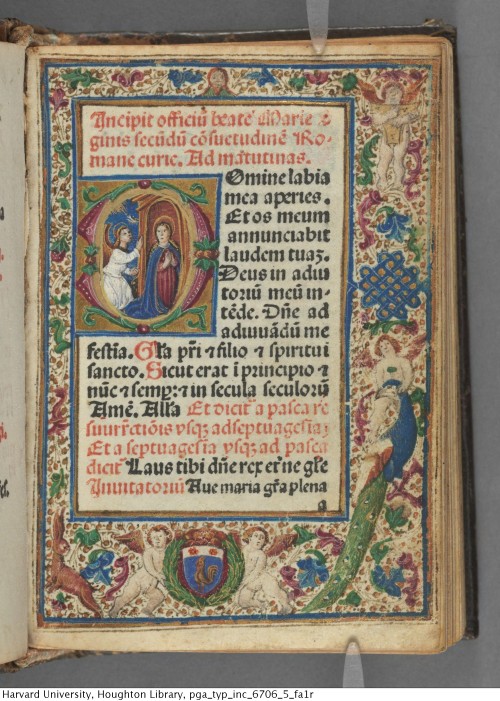 Incipit officiū beate Marie v
ginis secūdū cōsuetudinē Ro-
mane curie. Ad matutinas.
Domine labia
mea aperies.
Et os meum
annunciabit
laudem tuaꝫ.
Deus in adiu
toriū meū in-
tēde. Dn̄e ad
adiuuādū me
festīa. Gl̄a pr̄i ⁊ filio ⁊ spiritui
sancto. Sicut erat ī principio ⁊
nūc ⁊ semꝑ: ⁊ in secula seculorū
Amē. All̄a Et dicit᷑ a pasca re
surrectiōis vsqꝫ ad septuagesiā;
Et a septuagesīa vsqꝫ ad pasca
dicit᷑ Laus tibi dn̄e rex eterne gl̄e
Inuitatoriū Aue maria gr̄a plena
a
Harvard University, Houghton Library, pga_typ_inc_6706_5_fa1r